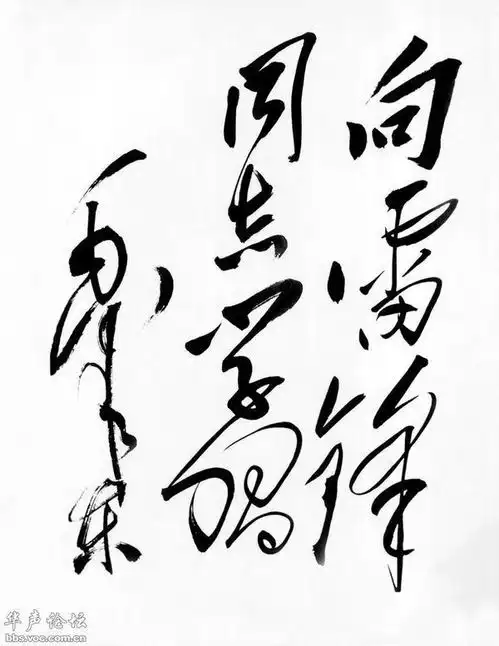 向雷锋
同志学习
毛泽东
华声论坛
bbs.voc.com.cn